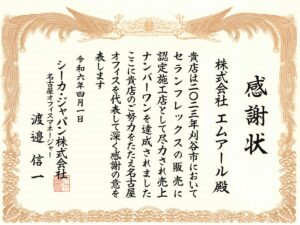 感謝状
株式会社 エムアール殿
貴店は二〇二三年刈谷市において
セランフレックスの販売に
認定施工店として尽力され売上
ナンバーワンを達成されました
ここに貴店のご努力をたたえ名古屋
オフィスを代表して深く感謝の意を
表します
令和六年四月一日
シーカ・ジャパン株式会社
名古屋オフィスマネージャー
渡邉 信一